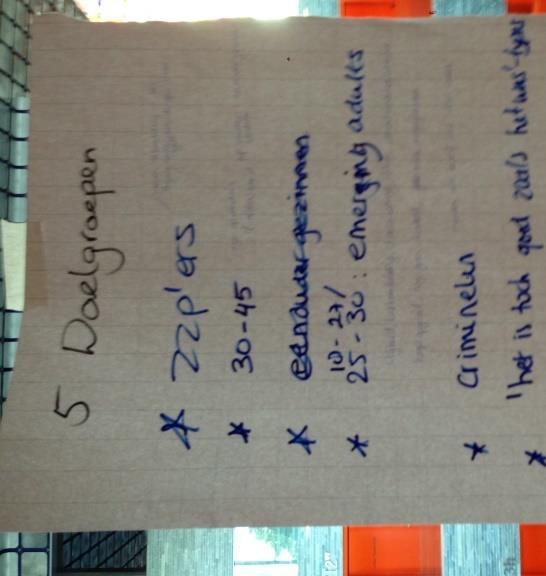 5 Doelgroepen
* ZZP'ers
* 30-45
* eenoudergezinnen
18-27/
* 25-30: emerging adults
* Criminelen
* 'het is toch goed zoals het was'-types